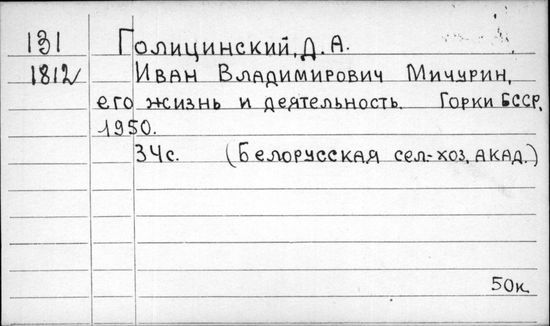 131 Голицинский, Д. А.
1812 Иван Владимирович Мичурин,
его жизнь и деятельность. Горки БССР,
1950.
34с. (Белорусская сел.-хоз. акад.)
50к